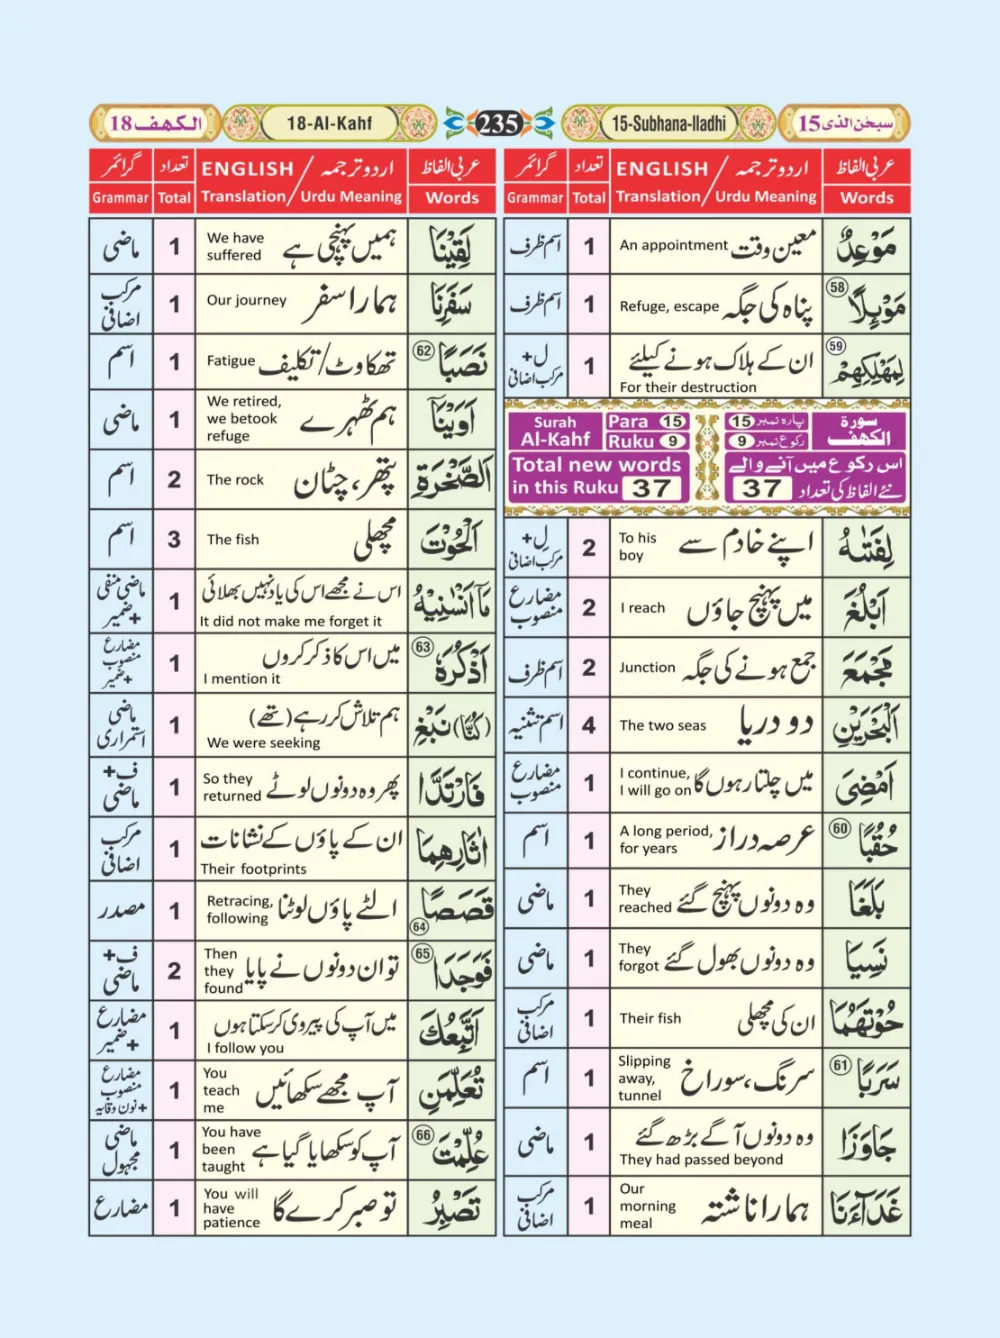 سبحٰن الذی 15
15-Subhana-lladhi
235
18-Al-Kahf
الکهف 18
عربی الفاظ اردو ترجمہ / ENGLISH تعداد گرائمر
Words Urdu Meaning / Translation Total Grammar
مَوْعِدٌ معین وقت An appointment 1 اسم ظرف
مَوْئِلًا 58 پناہ کی جگہ Refuge, escape 1 اسم ظرف
لِمَهْلِكِهِمْ 59 ان کے ہلاک ہونے کیلئے 1 ل+
For their destruction مرکب اضافی
سورة الکهف پارہ نمبر 15 Para 15 Surah
رکوع نمبر 9 Ruku 9 Al-Kahf
اس رکوع میں آنے والے Total new words
نئے الفاظ کی تعداد 37 in this Ruku 37
لِفَتٰىهُ اپنے خادم سے To his boy 2 لِ+ مرکب اضافی
اَبْلُغَ میں پہنچ جاؤں I reach 2 مضارع منصوب
مَجْمَعَ جمع ہونے کی جگہ Junction 2 اسم ظرف
الْبَحْرَيْنِ دو دریا The two seas 4 اسم تثنیہ
اَمْضِیَ میں چلتا رہوں گا I continue, I will go on 1 مضارع منصوب
حُقُبًا 60 عرصہ دراز A long period, for years 1 اسم
بَلَغَا وہ دونوں پہنچ گئے They reached 1 ماضی
نَسِيَا وہ دونوں بھول گئے They forgot 1 ماضی
حُوْتَهُمَا ان کی مچھلی Their fish 1 مرکب اضافی
سَرَبًا 61 سرنگ، سوراخ Slipping away, tunnel 1 اسم
جَاوَزَا وہ دونوں آگے بڑھ گئے They had passed beyond 1 ماضی
غَدَآءَنَا ہمارا ناشتہ Our morning meal 1 مرکب اضافی
عربی الفاظ اردو ترجمہ / ENGLISH تعداد گرائمر
Words Urdu Meaning / Translation Total Grammar
لَقِيْنَا ہمیں پہنچی ہے We have suffered 1 ماضی
سَفَرِنَا ہمارا سفر Our journey 1 مرکب اضافی
نَصَبًا 62 تھکاوٹ/تکلیف Fatigue 1 اسم
اَوَيْنَآ ہم ٹھہرے We retired, we betook refuge 1 ماضی
الصَّخْرَةِ پتھر، چٹان The rock 2 اسم
الْحُوْتَ مچھلی The fish 3 اسم
مَآ اَنْسٰنِيْهُ اس نے مجھے اس کی یاد نہیں بھلائی It did not make me forget it 1 ماضی منفی +ضمیر
اَذْكُرَهٗ 63 میں اس کا ذکر کروں I mention it 1 مضارع منصوب +ضمیر
(كُنَّا) نَبْغِ ہم تلاش کر رہے (تھے) We were seeking 1 ماضی استمراری
فَارْتَدَّا پھر وہ دونوں لوٹے So they returned 1 ف+ ماضی
اٰثَارِهِمَا ان کے پاؤں کے نشانات Their footprints 1 مرکب اضافی
قَصَصًا 64 الٹے پاؤں لوٹنا Retracing, following 1 مصدر
فَوَجَدَا 65 تو ان دونوں نے پایا Then they found 2 ف+ ماضی
اَتَّبِعُكَ میں آپ کی پیروی کر سکتا ہوں I follow you 1 مضارع +ضمیر
تُعَلِّمَنِ آپ مجھے سکھائیں You teach me 1 مضارع منصوب +نون وقایہ
عُلِّمْتَ 66 آپ کو سکھایا گیا ہے You have been taught 1 ماضی مجہول
تَصْبِرُ تو صبر کرے گا You will have patience 1 مضارع